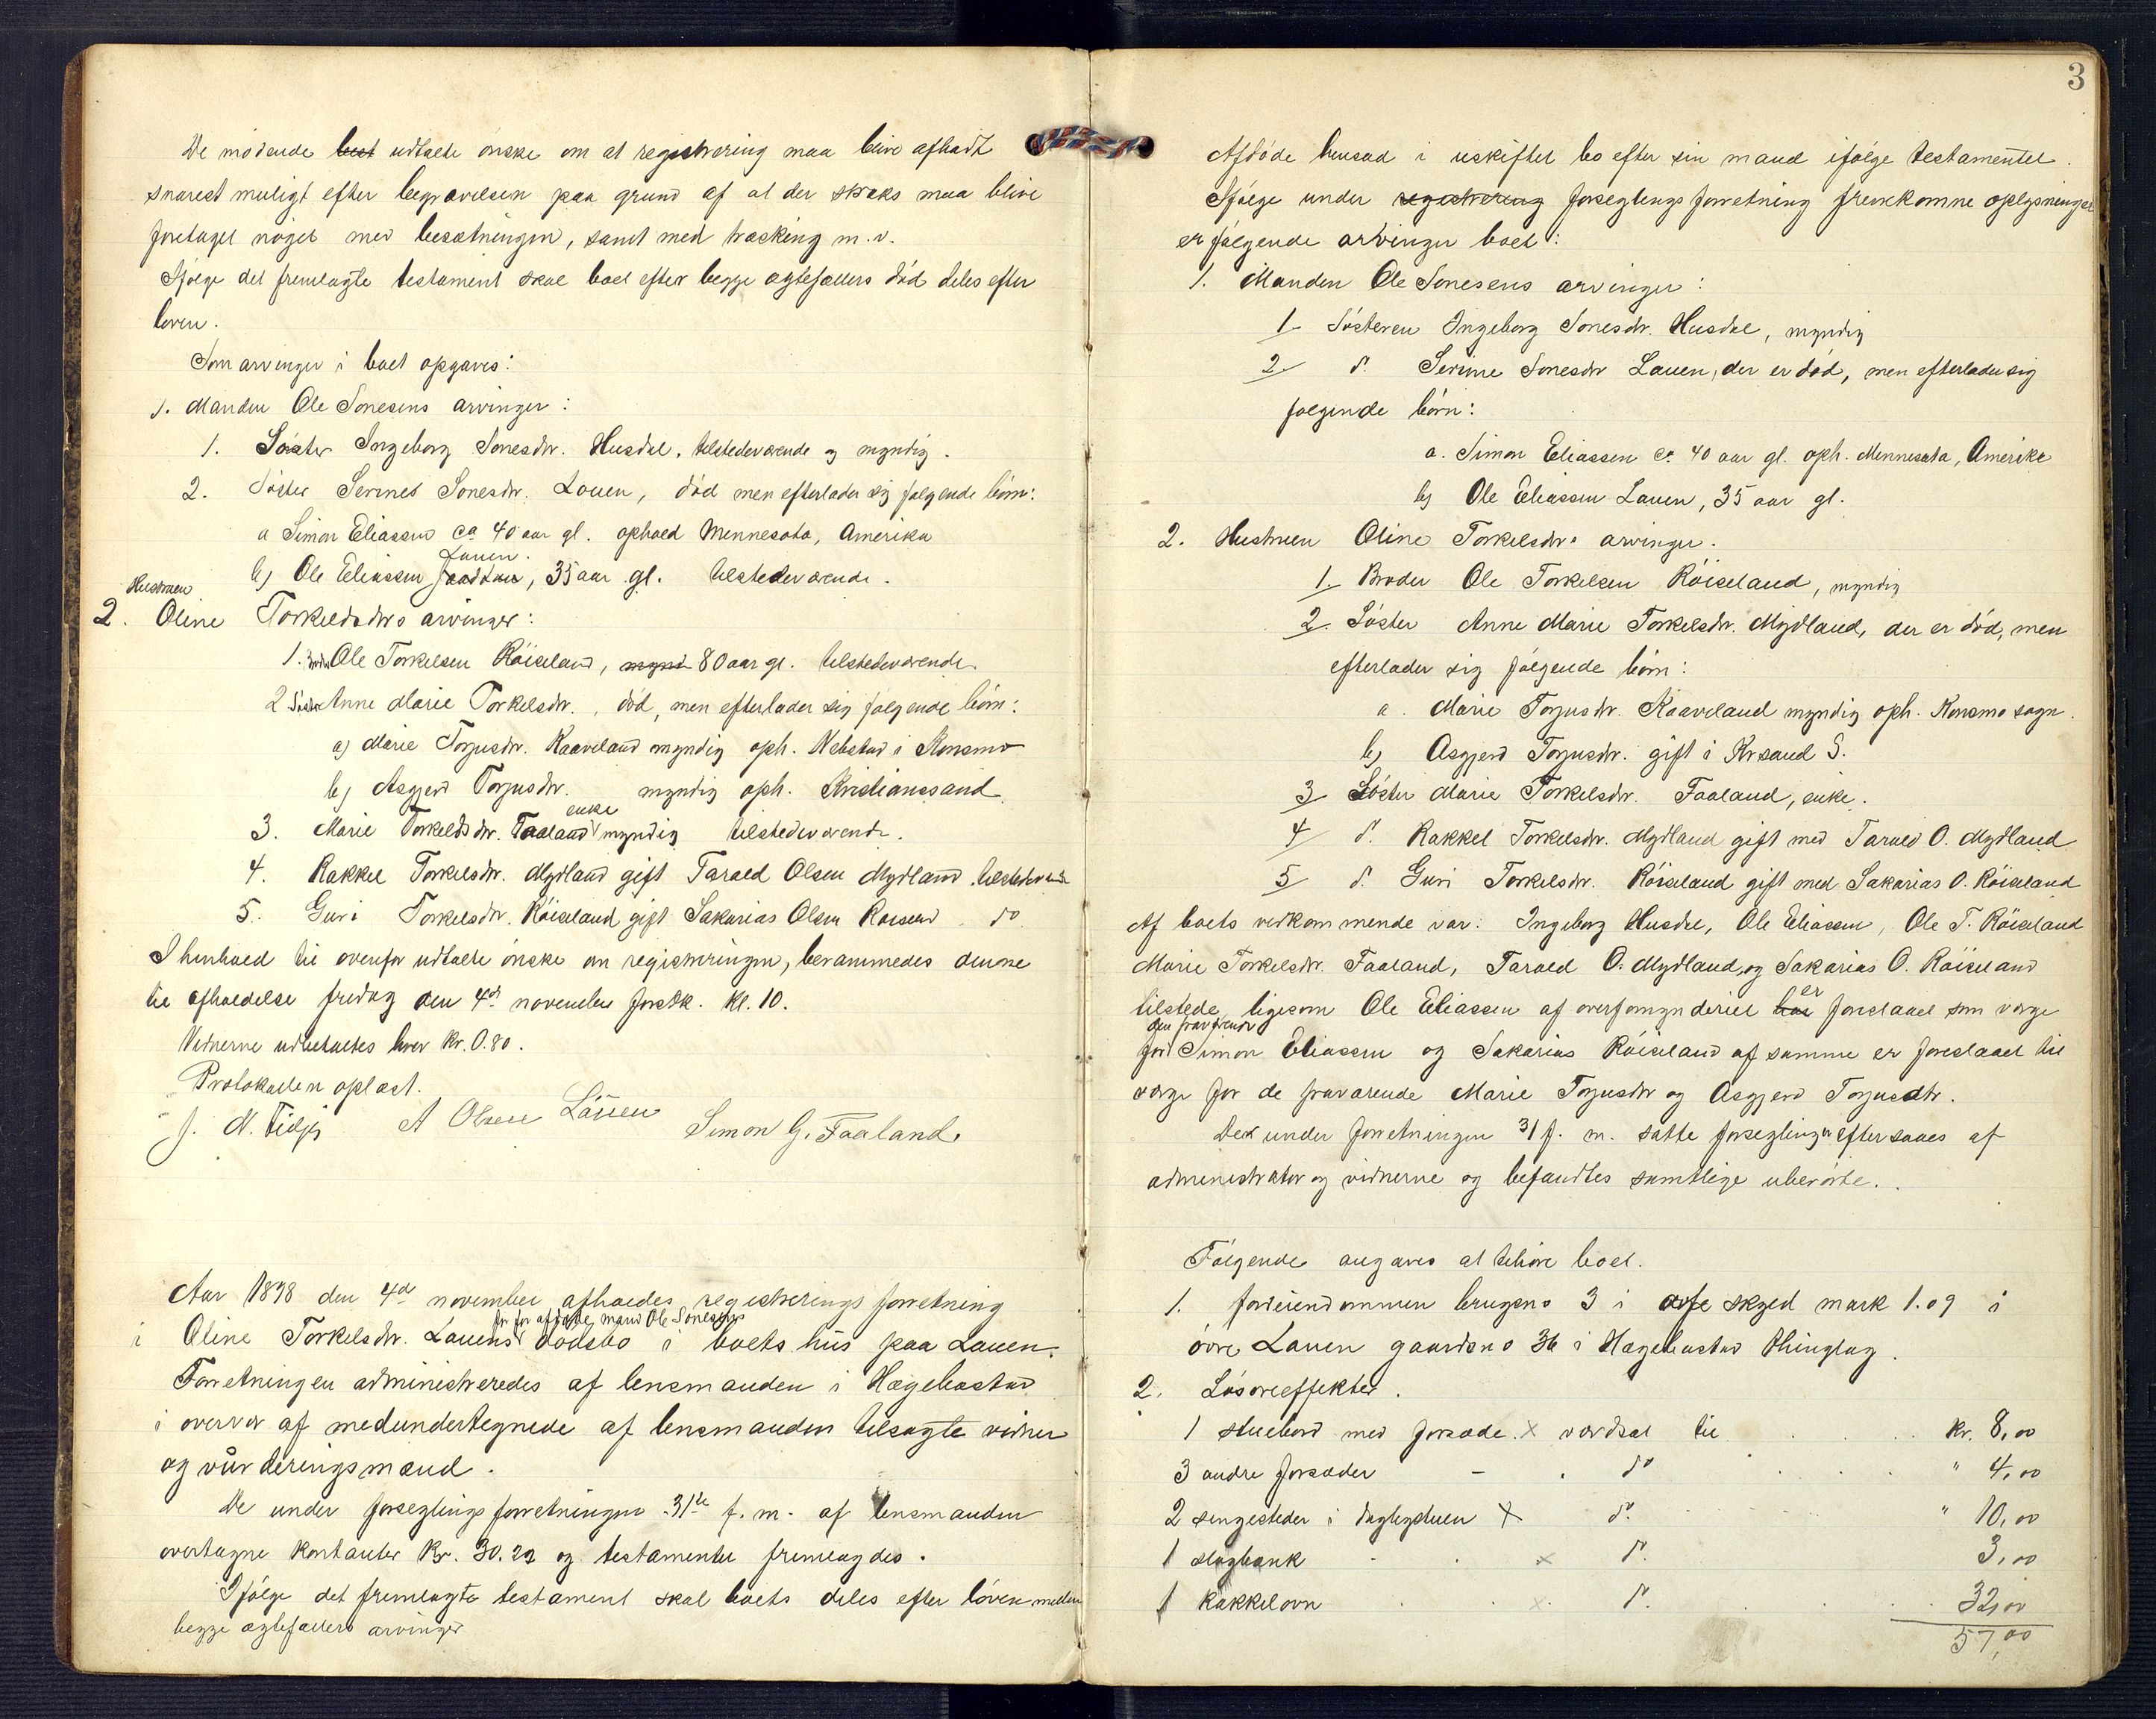 De mødende best udtalte ønske om at registrering maa blive afholdt
snarest muligt efter begravelsen paa grund af at der straks maa blive
foretaget noget med besætningen, samt med træsking m.v.
Ifølge det fremlagte testament skal boet efter begge ægtefællers død deles efter
loven.
Som arvinger i boet opgaves:
1. Manden Ole Sonesens arvinger:
1. Søster Ingeborg Sonesdtr. Husdal, tilstedeværende og myndig.
2. Søster Serines Sonesdtr. Louen, død men efterlader sig følgende børn:
a Simon Eliassen ca 40 aar gl. ophold Minnesota, Amerika
Lauen.
b) Ole Eliassen, 35 aar gl. tilstedeværende.
Hustruen
2. Oline Torkeldsdtrs arvinger:
1. Broder Ole Torkelsen Röiseland, mynd 80 aar gl. tilstedeværende
2 Søster Anne Marie Torkelsdtr., død, men efterlader sig følgende børn:
a) Marie Torjusdtr. Kaaveland myndig oph. Nebstad i Konsmo
b) Asgjerd Torjusdtr. myndig oph. Kristianssand
enke
3. Marie Torkeldsdtr. Faaland myndig tilstedeværende.
4. Rakkel Torkelsdtr. Mydland gift Tarald Olsen Mydland, tilstedeværende
5. Guri Torkelsdtr. Röiseland gift Sakarias Olsen Röiseland do
I henhold til ovenfor udtalte ønske om registreringen, berammedes denne
til afholdelse fredag den 4de november førstk. kl. 10.
Vidnerne udbetaltes hver kr. 0.80.
Protokollen oplæst.
J. M. Tidjes A Olsen Låuen Simon G. Faaland.
Aar 1898 den 4de november afholdes registrerings forretning
før afdøde mand Ole Sonesens
i Oline Torkelsdtr. Lauens dødsbo i boets hus paa Lauen.
Forretningen administreredes af lensmanden i Hægebostad
i overvær af medundertegnede af lensmanden tilsagte vidner
og vurderingsmænd.
De under forseglingsforretningen 31te f. m. af lensmanden
overtagne kontanter Kr. 30.22 og testamentet fremlagdes.
Ifølge det fremlagte testament skal boets deles efter loven mellem
begge ægtefællers arvinger
3
Afdøde hensad i uskiftet bo efter sin mand ifølge testamentet.
Ifølge under registrering forseglings forretning fremkomne oplysninger
er følgende arvinger i boet:
1. Manden Ole Sonesens arvinger:
1. Søsteren Ingeborg Sonesdtr. Husdal, myndig
2. do Serine Sonesdtr Lauen, der er død, men efterlader sig
følgende børn:
a. Simon Eliassen ca 40 aar gl. oph. Minnesota, Amerika
b) Ole Eliassen Lauen, 35 aar gl.
2. Hustruen Oline Torkelsdtr. arvinger.
1. Broder Ole Torkelsen Röiseland, myndig
2. Søster Anne Marie Torkelsdtr. Mydland, der er død, men
efterlader sig følgende børn:
a. Marie Torjusdtr. Kaaveland myndig oph. Konsmo sogn.
b) Asgjerd Torjusdtr. gift i Krsand S.
3 Søster Marie Torkelsdtr. Faaland, enke.
4 do Rakkel Torkelsdtr. Mydland gift med Tarald O. Mydland
5 do Guri Torkelsdtr. Röiseland gift med Sakarias O. Röiseland
Af boets vedkommende var: Ingeborg Husdal, Ole Eliassen, Ole T. Röiseland
Marie Torkelsdtr. Faaland, Tarald O. Mydland, og Sakarias O. Röiseland
er
tilstede, ligesom Ole Eliassen af overformynderiet har foreslaaet som værge
den fraværende
for Simon Eliassen og Sakarias Röiseland af samme er foreslaaet til
værge for de fraværende Marie Torjusdtr og Asgjerd Torjusdtr.
De under forretningen 31 f. m. satte forseglinger eftersaaes af
administrator og vidnerne og befandtes samtlige uberørte.
Følgende angaves at tilhøre boet.
1. Jordeiendommen brugsno 3 i skyld mark 1.09 i
øvre Lauen gaardsno 36 i Hægebostad thinglag.
2. Løsøreeffekter.
1 stuebord med forsæde. x værdsat til kr. 8,00
3 andre forsæder - do " 4,00
2 sengesteder i dagligstuen x do " 10,00
1 slagbænk x do 3,00
1 kakkelovn x do 32,00
57,00